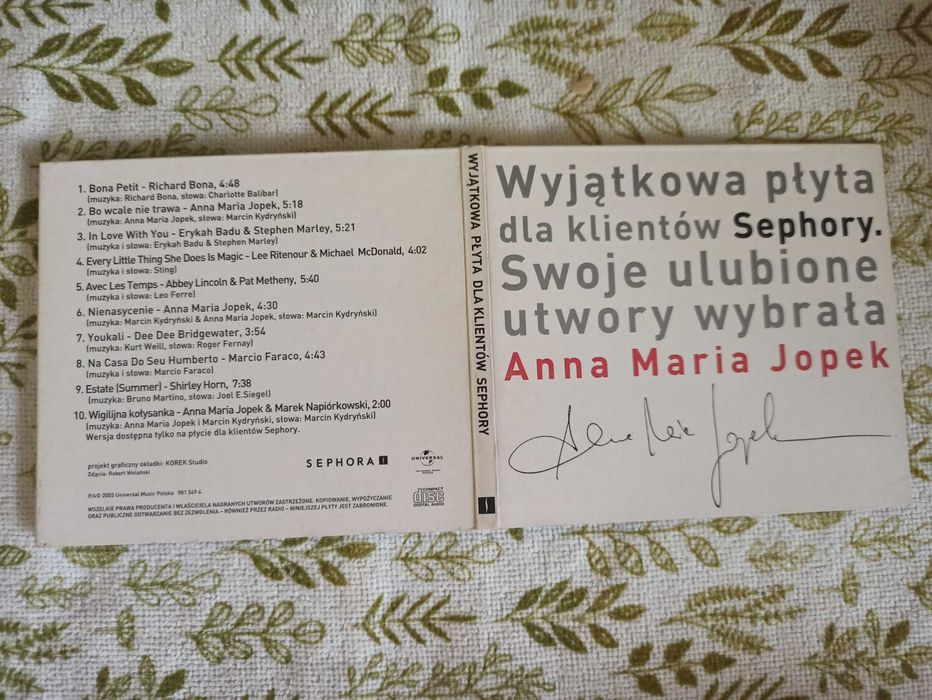 1. Bona Petit - Richard Bona, 4:48
(muzyka: Richard Bona, słowa: Charlotte Balibar)
2. Bo wcale nie trawa - Anna Maria Jopek, 5:18
(muzyka: Anna Maria Jopek, słowa: Marcin Kydryński)
3. In Love With You - Erykah Badu & Stephen Marley, 5:21
(muzyka i słowa: Erykah Badu & Stephen Marley)
4. Every Little Thing She Does Is Magic - Lee Ritenour & Michael McDonald, 4:02
(muzyka i słowa: Sting)
5. Avec Les Temps - Abbey Lincoln & Pat Metheny, 5:40
(muzyka i słowa: Leo Ferre)
6. Nienasycenie - Anna Maria Jopek, 4:30
(muzyka: Marcin Kydryński & Anna Maria Jopek, słowa: Marcin Kydryński)
7. Youkali - Dee Dee Bridgewater, 3:54
(muzyka: Kurt Weill, słowa: Roger Fernay)
8. Na Casa Do Seu Humberto - Marcio Faraco, 4:43
(muzyka i słowa: Marcio Faraco)
9. Estate (Summer) - Shirley Horn, 7:38
(muzyka: Bruno Martino, słowa: Joel E.Siegel)
10. Wigilijna kołysanka - Anna Maria Jopek & Marek Napiórkowski, 2:00
(muzyka: Anna Maria Jopek i Marcin Kydryński, słowa: Marcin Kydryński)
Wersja dostępna tylko na płycie dla klientów Sephory.
projekt graficzny okładki: KOREK Studio
Zdjęcia: Robert Wolański
SEPHORA
UNIVERSAL
℗&© 2003 Universal Music Polska 981 549 4
COMPACT
disc
DIGITAL AUDIO
WSZELKIE PRAWA PRODUCENTA I WŁAŚCICIELA NAGRANYCH UTWORÓW ZASTRZEŻONE. KOPIOWANIE, WYPOŻYCZANIE
ORAZ PUBLICZNE ODTWARZANIE BEZ ZEZWOLENIA – RÓWNIEŻ PRZEZ RADIO – NINIEJSZEJ PŁYTY JEST ZABRONIONE.
WYJĄTKOWA PŁYTA DLA KLIENTÓW SEPHORY
Wyjątkowa płyta
dla klientów Sephory.
Swoje ulubione
utwory wybrała
Anna Maria Jopek